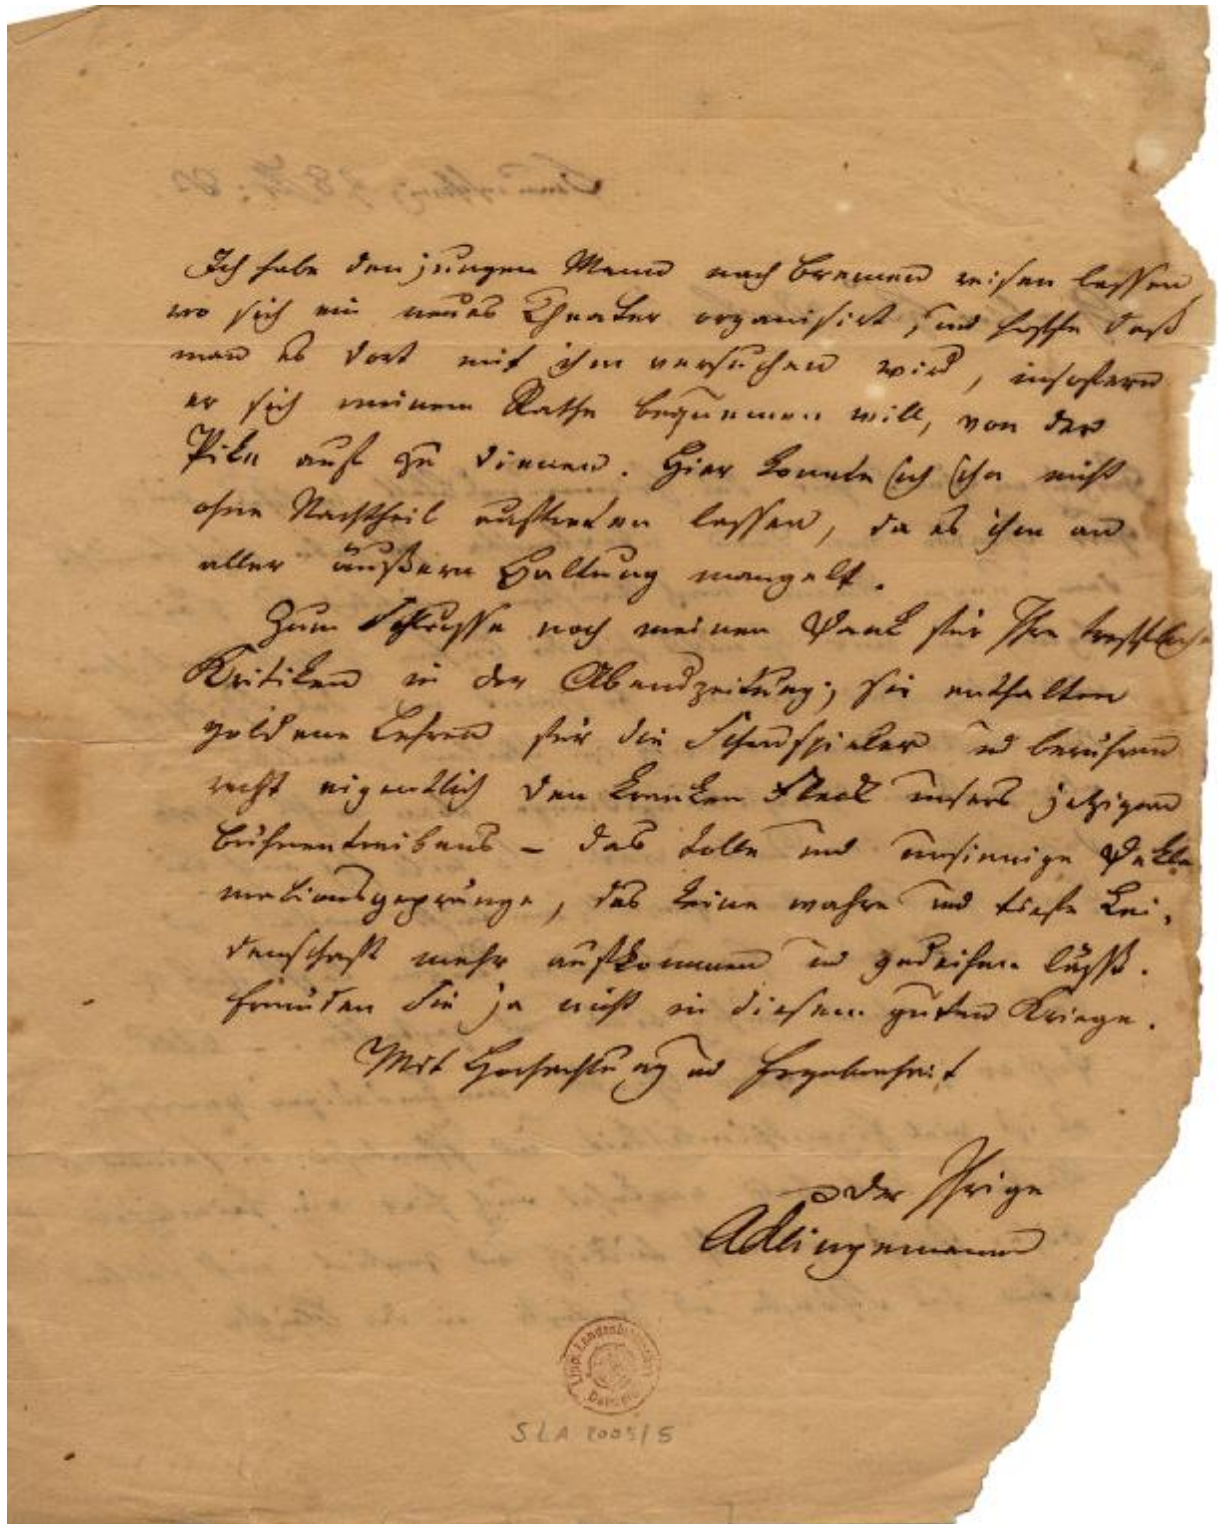 Ich habe den jungen Mann nach Bremen reisen lassen,
wo sich ein neues Theater organisirt, und hoffe daß
man es dort mit ihm versuchen wird, insofern
er sich meinem Rathe bequemen will, von der
Pike auf zu dienen. Hier konnte ich ihn nicht
ohne Nachtheil auftreten lassen, da es ihm an
aller äußern Haltung mangelt.
Zum Schlusse noch meinen Dank für Ihre trefflichen
Kritiken in der Abendzeitung; sie enthalten
goldene Lehren für die Schauspieler und berühren
recht eigentlich den kranken Fleck unsers jetzigen
Bühnentreibens – das tolle und unsinnige Dekla
mationsgepränge, das keine wahre und tiefe Lei-
denschaft mehr aufkommen und gedeihen läßt.
Ermüden Sie ja nicht in diesem guten Kriege.
Mit Hochachtung und Ergebenheit
der Ihrige
AKlingemann
Lipp. Landesbibliothek
Detmold
SLA 2005/5